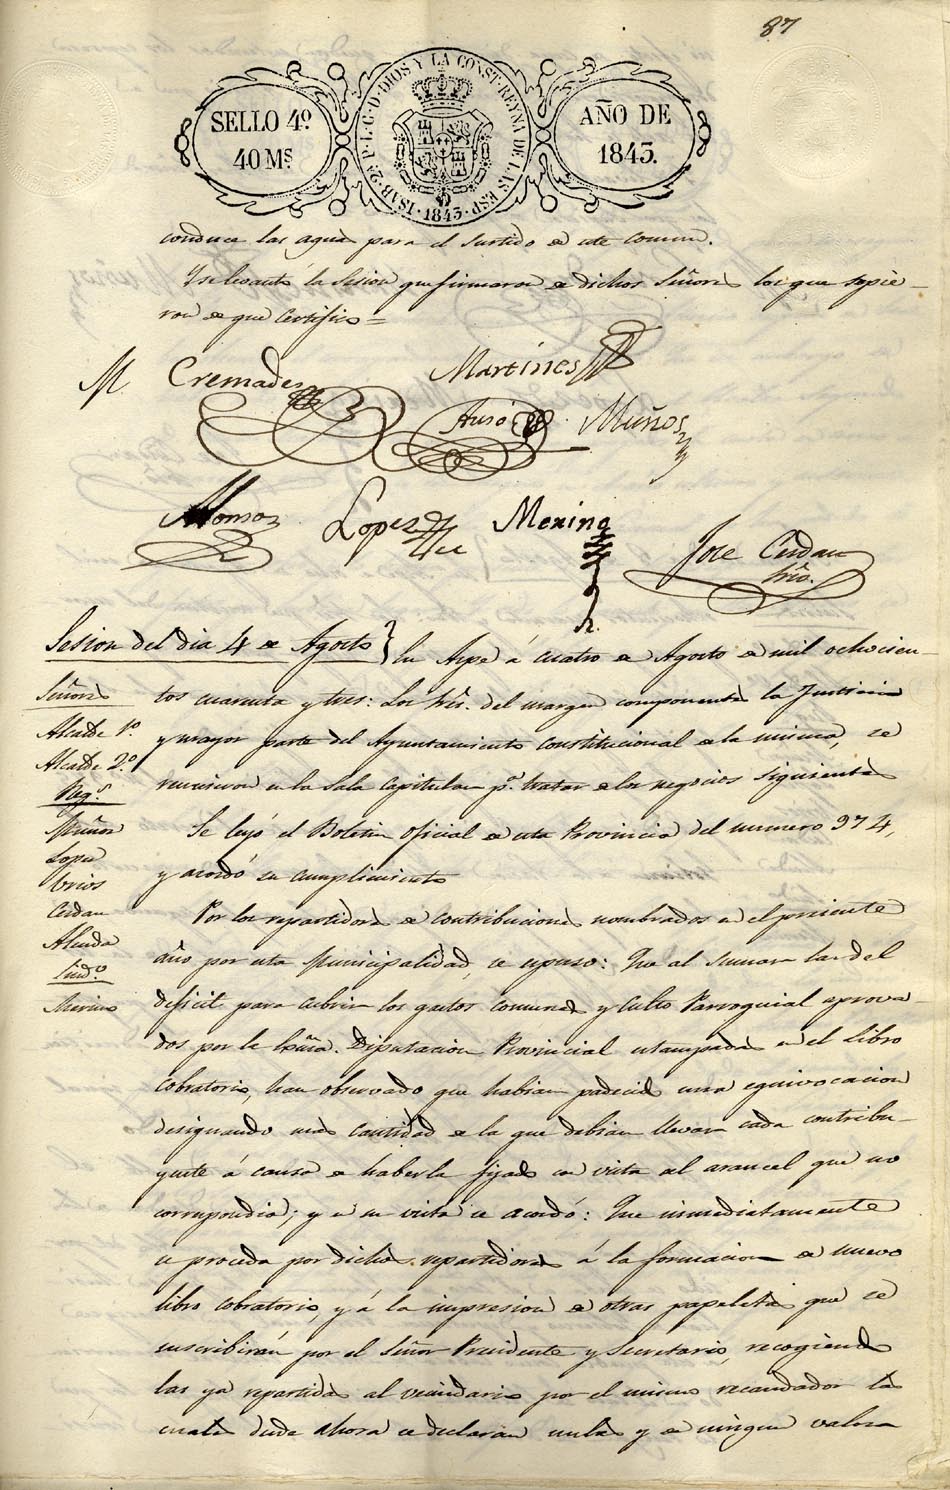 87
SELLO 4º
40 Ms
ISAB. 2ª P. L. G. D. DIOS Y LA CONST. REYNA DE LAS ESP.
1843
AÑO DE
1843.
conduce las aguas para el surtido de este comun.
Y se levantó la Sesion que firmaron de dichos Señores los que supie-
ron de que Certifico =
M. Cremades
Martines
Ausó
Muños
Alonso
Lopez
Merino
Jose Cerdan
Srio.
Sesion del dia 4 de Agosto
Señores
Alcalde 1º.
Alcalde 2º.
Regs.
Muños
Lopez
Cerdan
Sindº
Merino
En Aspe á cuatro de Agosto de mil ochocien-
tos cuarenta y tres: Los Sres. del margen componentes la Justicia
y mayor parte del Ayuntamiento constitucional de la misma, se
reunieron en la Sala Capitular pª. tratar de los negocios siguientes
Se leyó el Boletin oficial de esta Provincia del numero 974,
y acordó su cumplimiento
Por los repartidores de contribuciones nombrados en el presente
año por esta Municipalidad, se espuso: Que al sumar las del
deficit para cubrir los gastos comunes y Culto Parroquial aprova-
dos por la Exma. Diputacion Provincial estampadas en el Libro
Cobratorio, han observado que habian padecido una equivocacion
designando mas cantidad de la que debian llevar cada contribu-
yente á causa de haberla fijado en vista al arancel que no
correspondia; y en su vista se acordó: Que inmediatamente
se proceda por dichos repartidores á la formacion de nuevo
libro cobratorio, y á la impresion de otras papeletas que se
suscribirán por el Señor Presidente y Secretario, recogiendo
las ya repartidas al vecindario por el mismo recaudador las
cuales desde ahora se declaran nulas y de ningun valor